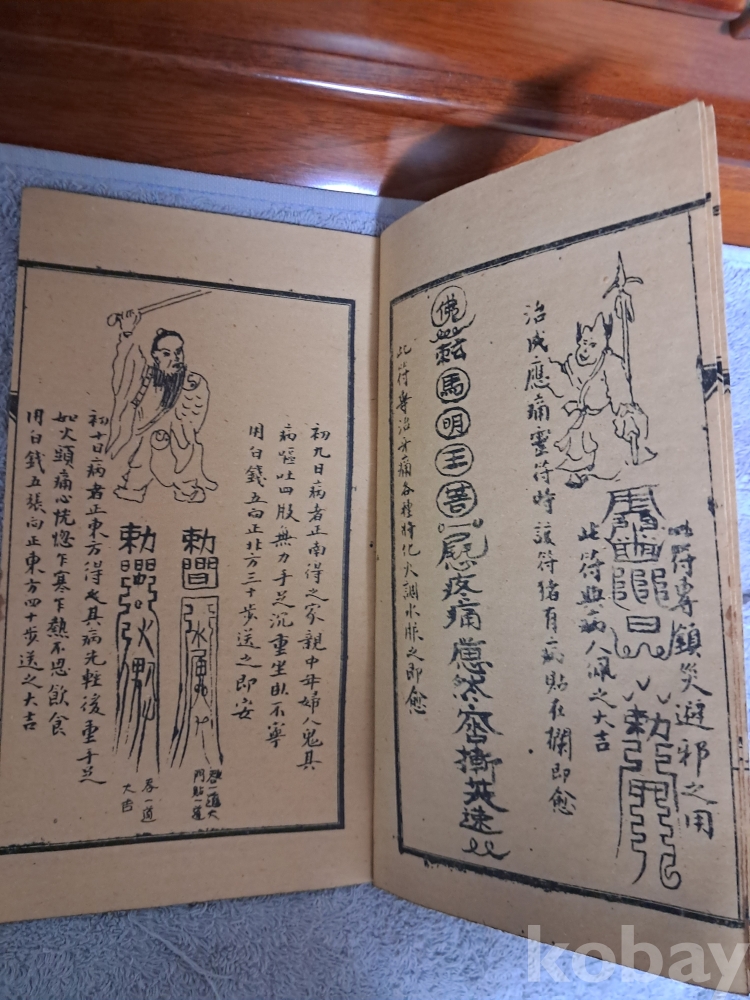 此符專鎮災避邪之用
此符與病人佩之大吉
治成應痛靈符時該符猪有病貼在欄即愈
佛
馬明王
疼痛
速
此符專治牙痛各種將化火調水服之即愈
初九日病者正南得之家親中母婦人鬼其
病嘔吐四肢無力手足沉重坐臥不寧
用白錢五向正北方三十步送之即安
勅
勅
吞一道大
門貼一道
吞一道
大吉
初十日病者正東方得之其病先輕後重手足
如火頭痛心恍惚乍寒乍熱不思飲食
用白錢五張向正東方四十步送之大吉
kobay